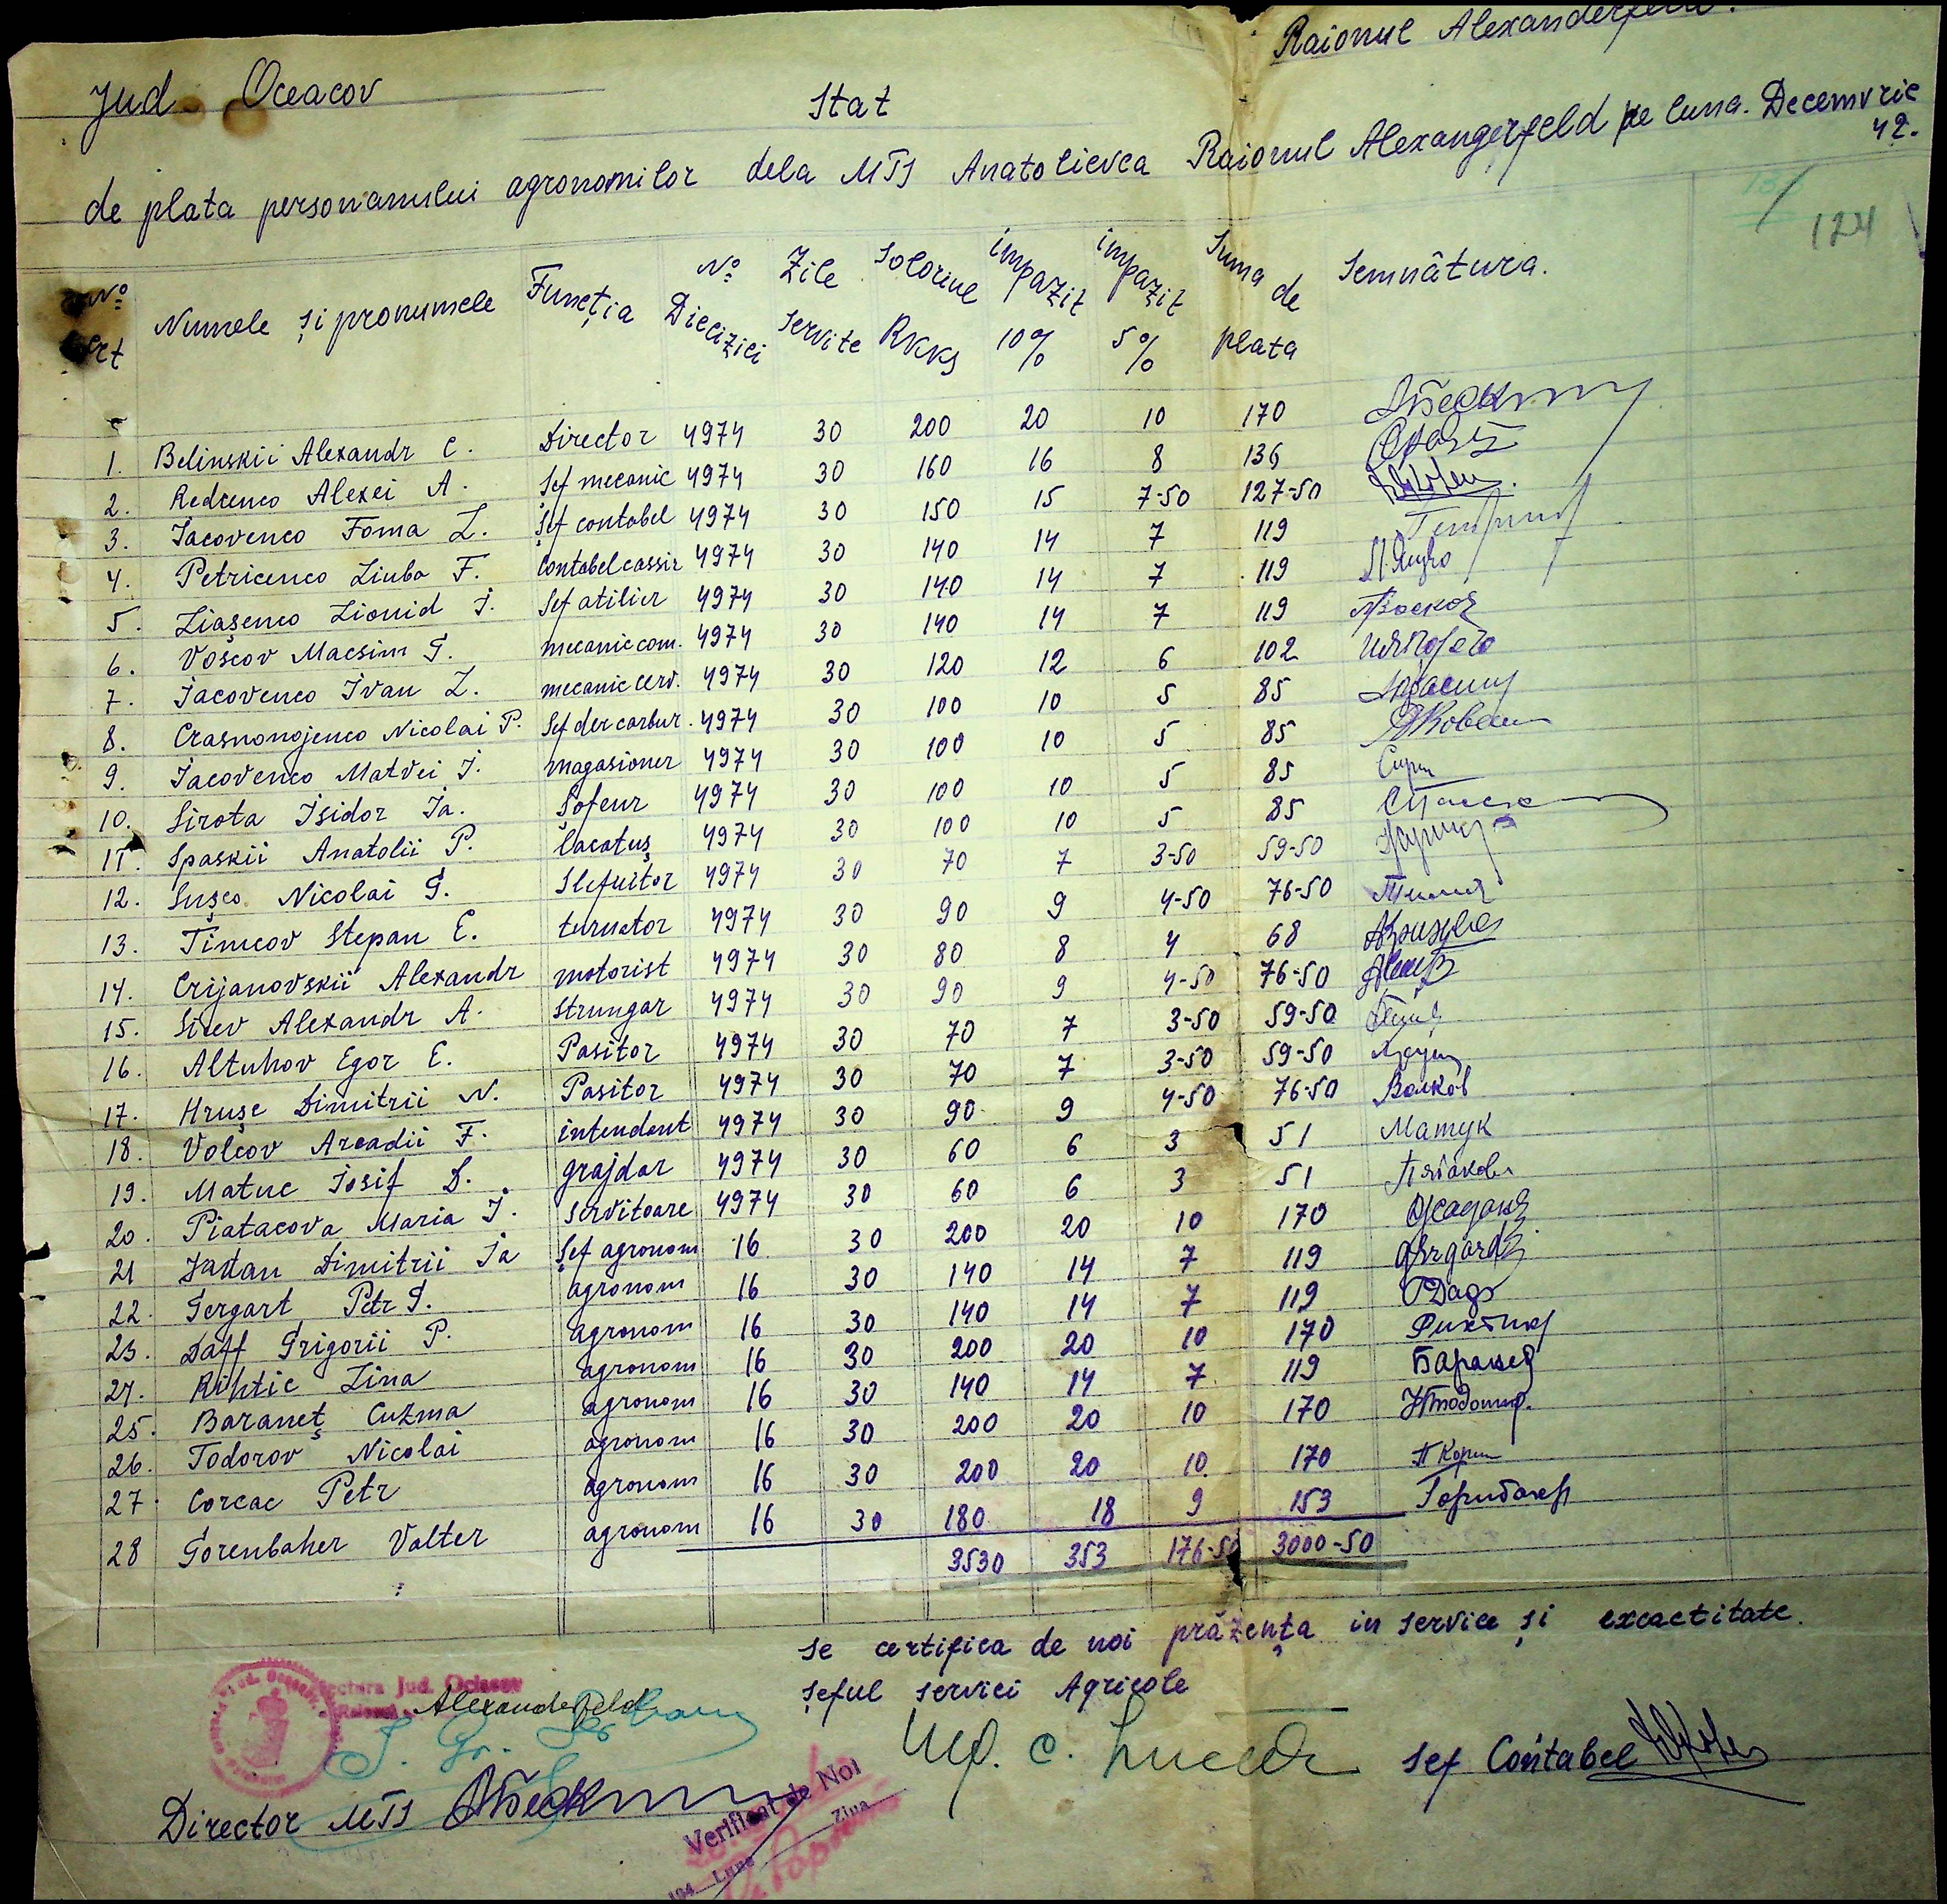 Raionul Alexanderfeld.
Jud. Oceacov
Stat
de plata personamului agronomilor dela MTS Anatolievca Raionul Alexangerfeld pe luna. Decemvrie 42.
124
No crt Numele și pronumele Funcția No Diecizici Zile servite Soloriul RKKS impazit 10% impazit 5% Suma de plata Semnâtura.
1. Belinskii Alexandr C. Director 4974 30 200 20 10 170
2. Redcenco Alexei A. Șef mecanic 4974 30 160 16 8 136
3. Iacovenco Foma L. Șef contabel 4974 30 150 15 7-50 127-50
4. Petricenco Liuba F. Contabel cassir 4974 30 140 14 7 119
5. Liașenco Lionid I. Șef atilier 4974 30 140 14 7 119
6. Voscov Macsim G. mecanic com. 4974 30 140 14 7 119
7. Iacovenco Ivan L. mecanic cerv. 4974 30 120 12 6 102
8. Crasnonojenco Nicolai P. Șef der carbur. 4974 30 100 10 5 85
9. Iacovenco Matvei I. magasioner 4974 30 100 10 5 85
10. Sirota Isidor Ia. Șofeur 4974 30 100 10 5 85
11. Spaskii Anatolii P. Lacatuș 4974 30 100 10 5 85
12. Sușco Nicolai G. Slefuitor 4974 30 70 7 3-50 59-50
13. Timcov Stepan E. turnator 4974 30 90 9 4-50 76-50
14. Crijanovskii Alexandr motorist 4974 30 80 8 4 68
15. Sicev Alexandr A. Strungar 4974 30 90 9 4-50 76-50
16. Altuhov Egor E. Pasitor 4974 30 70 7 3-50 59-50
17. Hrușc Dimitrii N. Pasitor 4974 30 70 7 3-50 59-50
18. Volcov Arcadii F. intendent 4974 30 90 9 4-50 76-50 Волков
19. Matuc Iosif D. grajdar 4974 30 60 6 3 51 Матук
20. Piatacova Maria I. servitoare 4974 30 60 6 3 51 Пятакова
21 Jadan Dimitrii Ia Șef agronom 16 30 200 20 10 170
22. Gergart Petr G. agronom 16 30 140 14 7 119
23. Daff Grigorii P. agronom 16 30 140 14 7 119
24. Rihtic Lina agronom 16 30 200 20 10 170
25. Baraneț Cuzma agronom 16 30 140 14 7 119 Баранец
26. Todorov Nicolai agronom 16 30 200 20 10 170
27. Corcac Petr agronom 16 30 200 20 10 170
28 Gorenbaher Valter agronom 16 30 180 18 9 153
3530 353 176-50 3000-50
se certifica de noi prăzența in service și excactitate.
șeful servici Agricole
Jud.
Alexanderfeld
Șef Contabel
Director MTS
Verificat de Noi
Luna Ziua